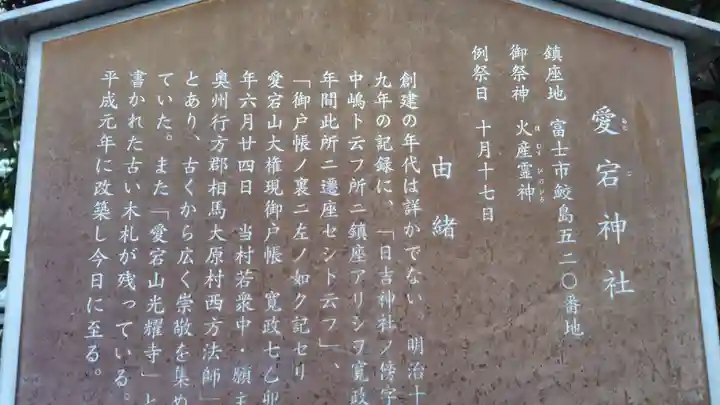 愛宕神社
あたご
鎮座地 富士市鮫島五二〇番地
御祭神 火産霊神
ほむすびのかみ
例祭日 十月十七日
由緒
創建の年代は詳かでない 明治十
九年の記録に、「日吉神社ノ傍字
中嶋ト云フ所ニ鎮座アリシヲ寛政
年間此所ニ遷座セシト云フ」、
「御戸帳ノ裏ニ左ノ如ク記セリ
愛宕山大権現御戸帳 寛政七乙卯
年六月廿四日 当村若衆中・願主
奥州行方郡相馬大原村西方法師」
とあり、古くから広く崇敬を集め
ていた。また「愛宕山光耀寺」と
書かれた古い木札が残っている。
平成元年に改築し今日に至る。